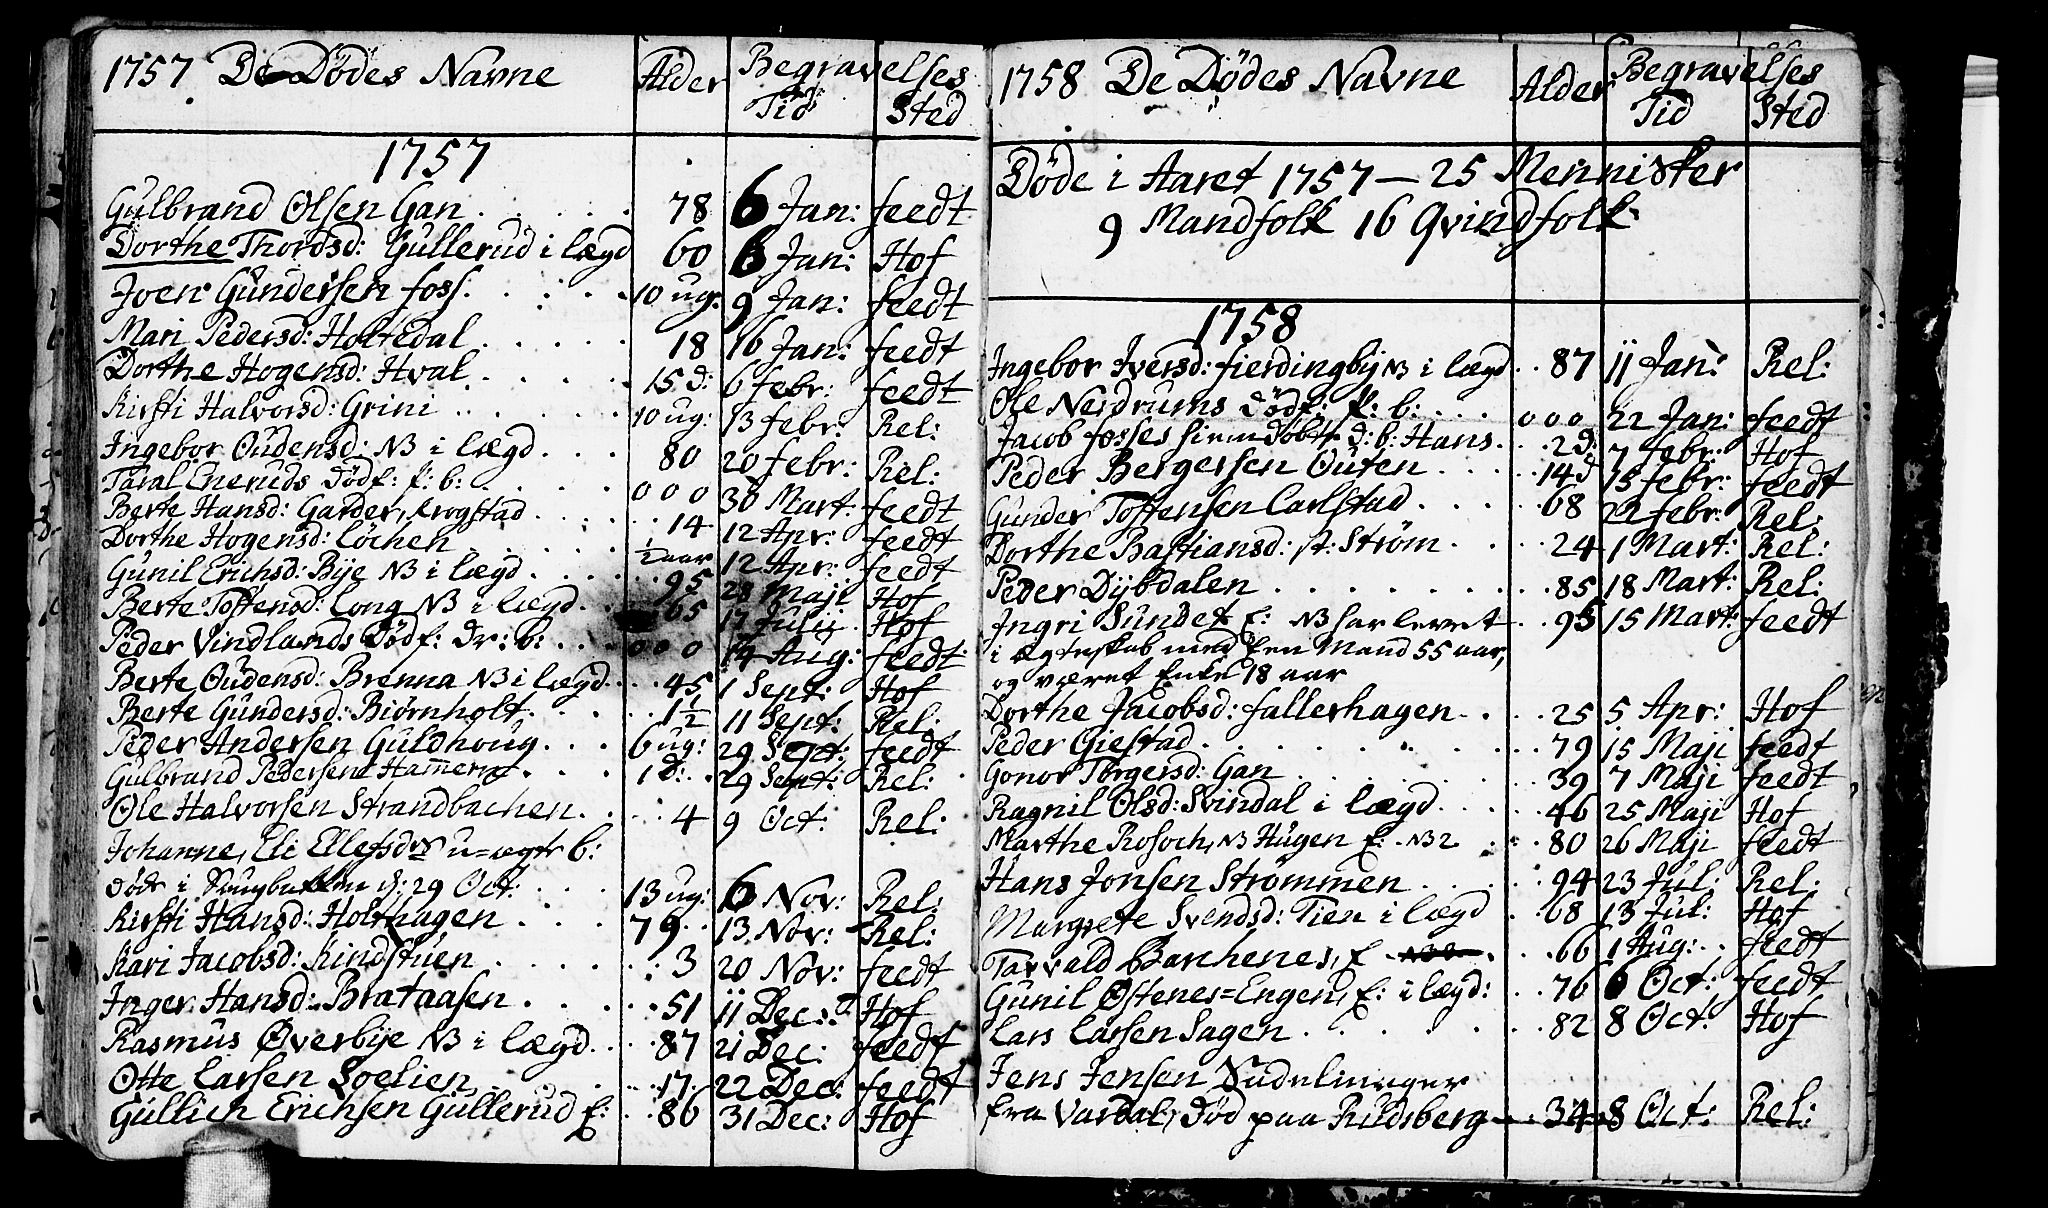 1757 De Dödes Navne Alder Begravelses
Tid Sted
1757
Gulbrand Olsen Gan 78 6 Jan: feedt
Dorthe Thordsd: Gullerud i lægd 60 6 Jan: Hof
Joen Gundersen foss 10 ug: 9 Jan: feedt
Mari Pedersd: Holtedal 18 16 Jan: feedt
Dorthe Hogensd: Hval 15 d: 6 febr: feedt
Kirsti Halvorsd: Grini 10 ug: 13 febr: Rel:
Ingebor Oudensd: NB i lægd 80 20 febr: Rel:
Taral Eneruds Dödf: p: b: 000 30 Mart feedt
Berte Hansd: Garder, krogstad 14 12 Apr: feedt
Dorthe Hogensd: Löchen 1/2 aar 12 Apr: feedt
Gunil Erichsd: Bije NB i lægd 95 28 Maji Hof
Berte Toftensd: Long NB i lægd 65 17 Julij Hof
Peder Vindlands Dödf: dr: b: 000 14 Aug: feedt
Berte Oudensd: Brenna NB i lægd 45 1 Sept: Hof
Berte Gundersd: Biørnholt 1 1/2 11 Sept: Rel:
Peder Andersen Guldhoug 6 ug: 29 Sept: feedt
Gulbrand Pedersen Hammeren 1 d: 29 Sept: Rel:
Ole Halvorsen Strandbachen 4 9 Oct: Rel:
Johanne, Eli Ellefsdr u=ægte b:
döde i d: 29 Oct: 13 ug: 6 Nov: Rel:
Kirsti Hansd: Holthagen 79 13 Nov: Rel:
Kari Jacobsd: Kindstuen 3 20 Nov: feedt
Inger Hansd: Brataasen 51 11 Dec: Hof
Rasmus Øverbije NB i lægd 87 21 Dec: feedt
Otte Larsen Soelien 17 22 Dec: feedt
Gullich Erichsen Gullerud E: 86 31 Dec: Hof
1758 De Dödes Navne Alder Begravelses
Tid Sted
Døde i Aaret 1757 — 25 Mennisker
9 Mandfolk 16 Qvindfolk
1758
Ingebor Iversd: fierdingbij NB i lægd 87 11 Jan: Rel:
Ole Nerdrums Dödf: p: b: 000 22 Jan: feedt
Jacob fosses hiemdöbte d: b: Hans 2 d: 7 febr: Hof
Peder Bergersen Outen 14 d 15 febr: feedt
Gunder Toftensen Carlstad 68 22 febr: Rel:
Dorthe Bastiansd: st: Strøm 24 1 Mart: Rel:
Peder Dybdalen 85 18 Mart: Rel:
Ingri Sundet E: NB har levet 95 15 Mart: feedt
i ægteskab med Een Mand 55 aar,
og været Enke 18 aar
Dorthe Jacobsd: fallerhagen 25 5 Apr: Hof
Peder Giestad 79 15 Maji feedt
Gonor Torgersd: Gan 39 7 Maji feedt
Ragnil Olsd: Svindal i lægd 46 25 Maji Hof
Marthe Rosoch, NB Hugen E: NB 2 80 26 Maji feedt
Hans Jonsen Strømmen 94 23 Jul: Rel:
Margrete Svendsd: Tien i lægd 68 13 Jul: Hof
Tarvald Barchenes, E 66 1 Aug: feedt
Gunil Østenes=Engen, E: i lægd: 76 6 Oct: feedt
Lars Larsen Sagen 82 8 Oct: Hof
Jens Jensen Sadelmager
fra Vardal, Død paa Rildsberg 34 8 Oct: Rel: